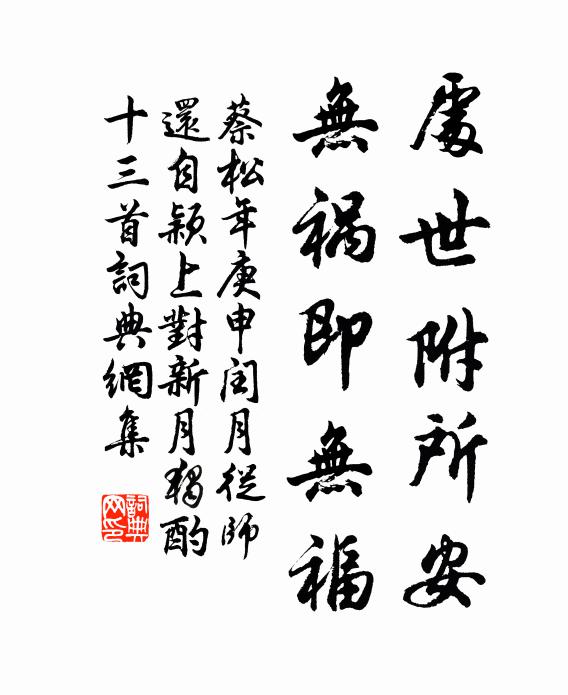 處世附所安
無禍即無福
蔡松年庚申閏月從師
還自颍上對新月獨酌
十三首詞典網集
詞典
网印